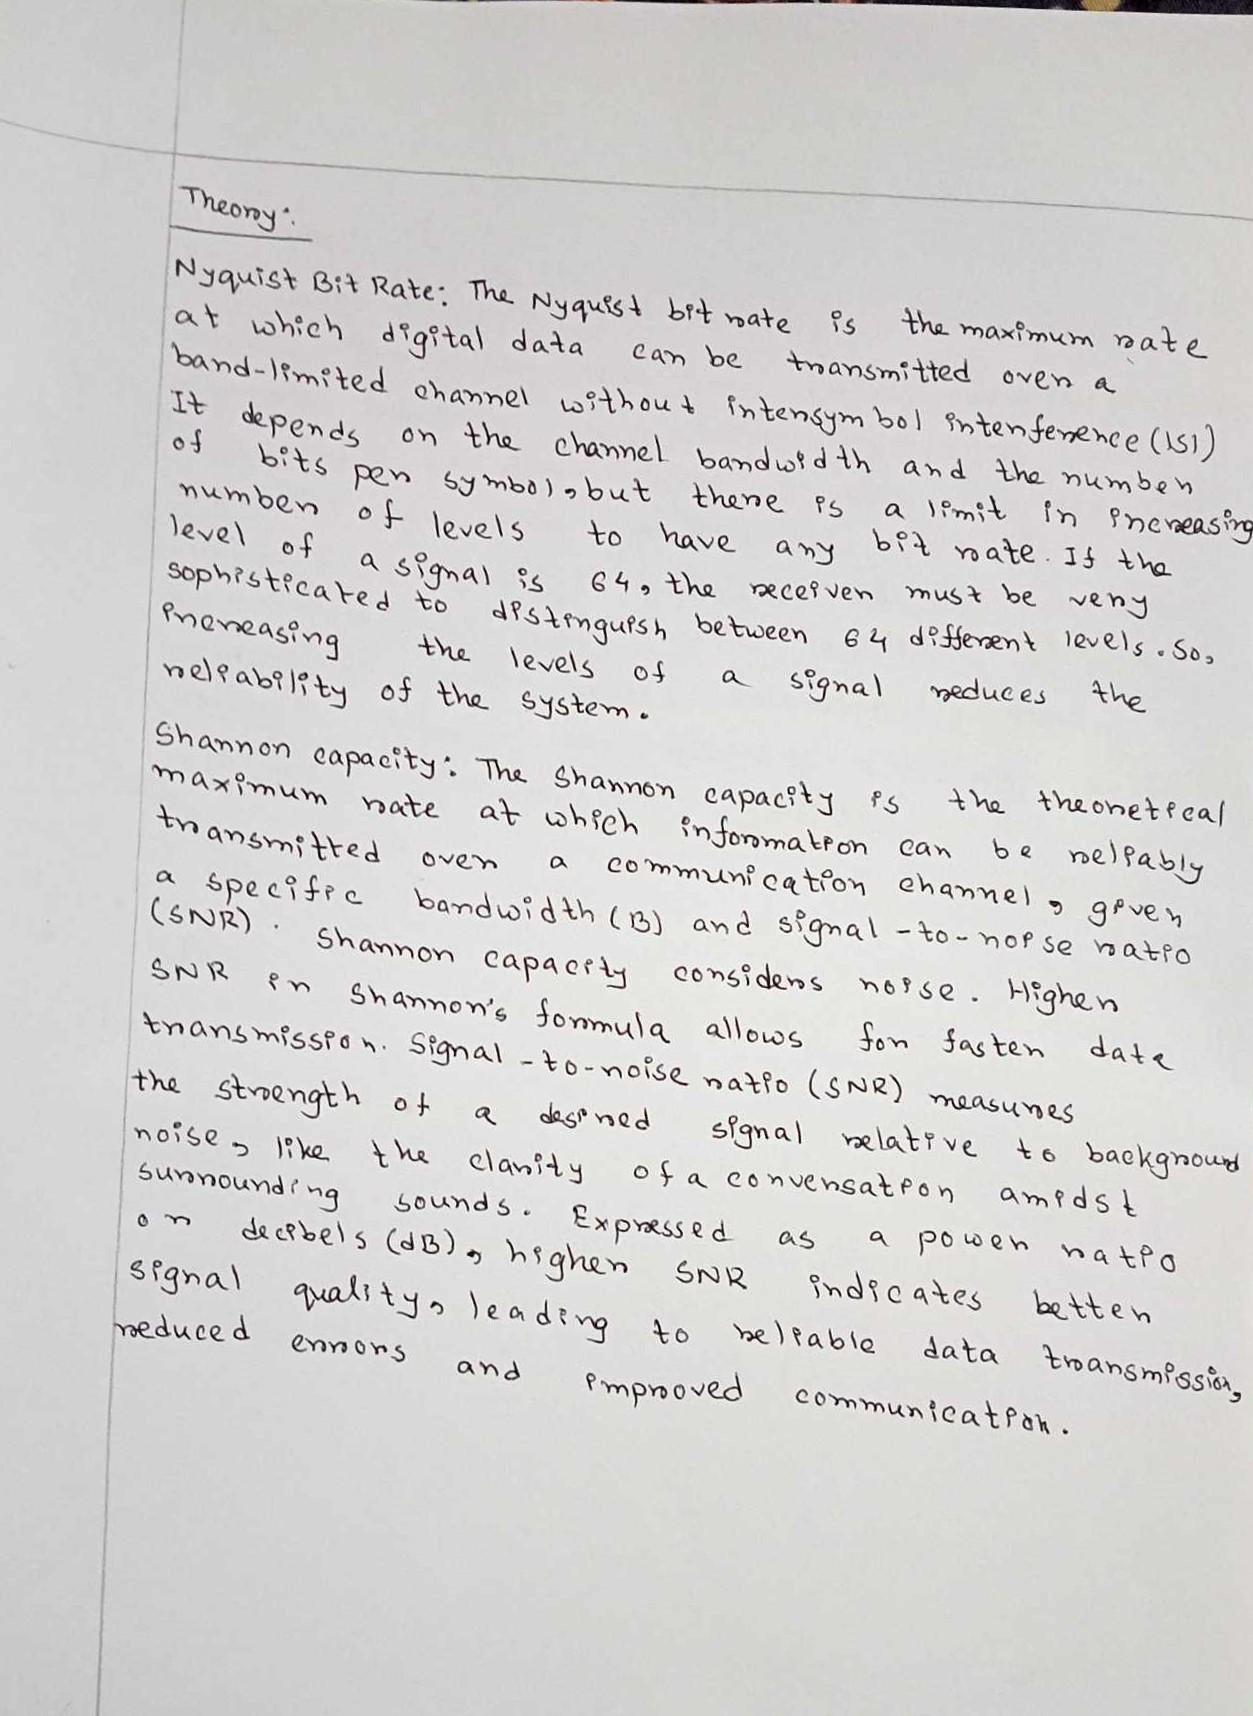 Theory:
Nyquist Bit Rate: The Nyquist bit rate is the maximum rate
at which digital data can be transmitted over a
band-limited channel without intersymbol interference (ISI)
It depends on the channel bandwidth and the number
of bits per symbol, but there is a limit in increasing
number of levels to have any bit rate. If the
level of a signal is 64, the receiver must be very
sophisticated to distinguish between 64 different levels. So,
increasing the levels of a signal reduces the
reliability of the system.
Shannon capacity: The Shannon capacity is the theoretical
maximum rate at which information can be reliably
transmitted over a communication channel, given
a specific bandwidth (B) and signal-to-noise ratio
(SNR). Shannon capacity considers noise. Higher
SNR in Shannon's formula allows for faster date
transmission. Signal-to-noise ratio (SNR) measures
the strength of a desired signal relative to background
noise, like the clarity of a conversation amidst
surrounding sounds. Expressed as a power ratio
or decibels (dB), higher SNR indicates better
signal quality, leading to reliable data transmission,
reduced errors and improoved communication.